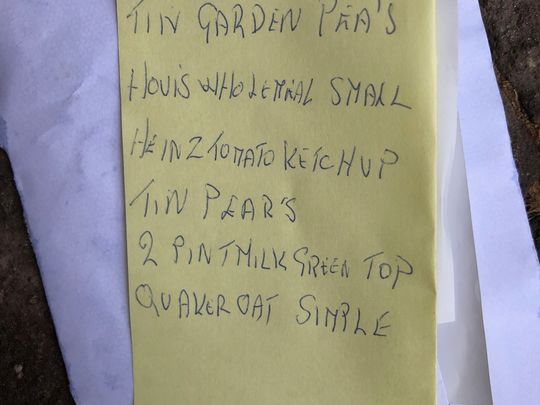 TIN GARDEN PEA'S
HOVIS WHOLEMEAL SMALL
HEINZ TOMATO KETCHUP
TIN PEAR'S
2 PINT MILK GREEN TOP
QUAKER OAT SIMPLE